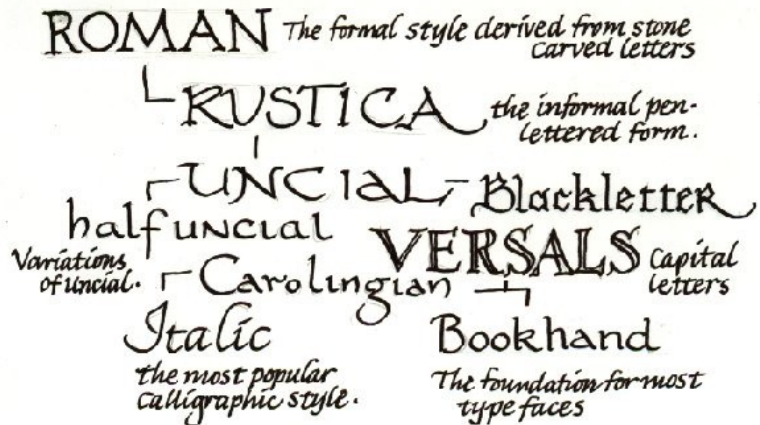 ROMAN The formal style derived from stone
carved letters
RUSTICA the informal pen-
lettered form.
UNCIAL Blackletter
half uncial VERSALS
Variations
of uncial.
Capital
letters
Carolingian
Italic Bookhand
the most popular
calligraphic style.
The foundation for most
type faces